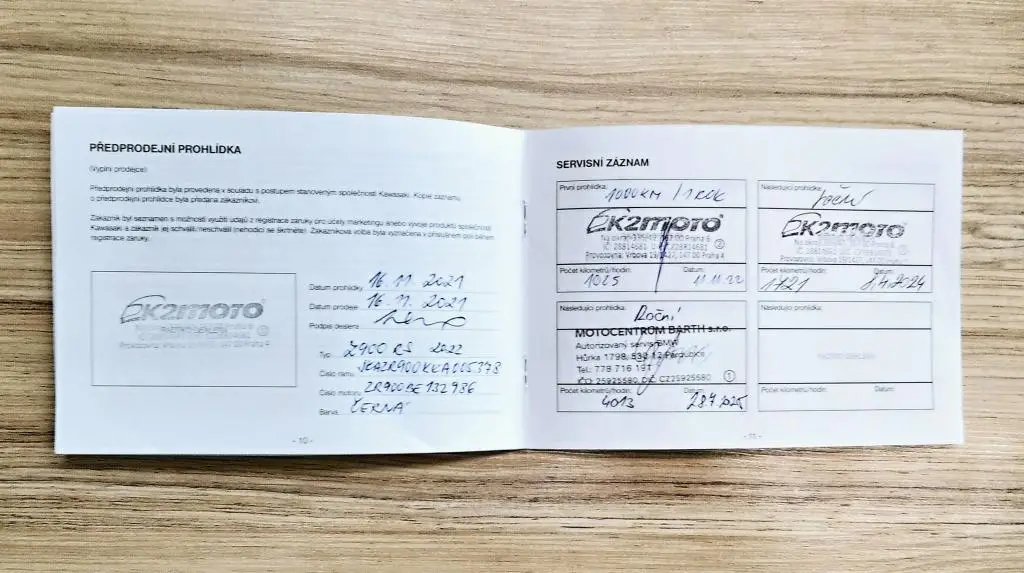 PŘEDPRODEJNÍ PROHLÍDKA
(Vyplní prodejce)
Předprodejní prohlídka byla provedena v souladu s postupem stanoveným společností Kawasaki. Kopie záznamu
o předprodejní prohlídce byla předána zákazníkovi.
Zákazník byl seznámen s možností využití údajů z registrace záruky pro účely marketingu anebo vývoje produktů společnosti
Kawasaki a zákazník jej schválil/neschválil (nehodící se škrtněte). Zákazníkova volba byla vyznačena v příslušném poli během
registrace záruky.
K2MOTO
Datum prohlídky 16. 11. 2021
Datum prodeje 16. 11. 2021
Podpis dealera
Typ Z900 RS 2022
Číslo rámu JKAZR900KKA005378
Číslo motoru ZR900BE132986
Barva ČERNÁ
- 10 -
SERVISNÍ ZÁZNAM
První prohlídka: 1000KM / 1 ROK
K2MOTO
147 00 Praha 4
Počet kilometrů/hodin: Datum:
1025 11.11.22
Následující prohlídka: Roční
K2MOTO
Počet kilometrů/hodin: Datum:
1721 2.4.2024
Následující prohlídka: Roční
MOTOCENTRUM BARTH s.r.o.
Autorizovaný servis BMW
Hůrka 1798, 530 12 Pardubice
Tel.: 778 716 191
IČO 25925580 DIČ CZ25925580 1
Počet kilometrů/hodin: Datum:
4013 28.7.2025
Následující prohlídka:
RAZÍTKO DEALERA
Počet kilometrů/hodin: Datum:
- 11 -